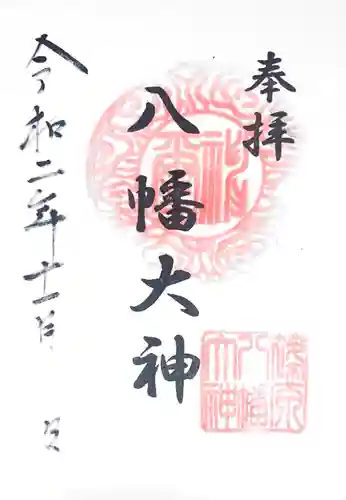 奉拝
八幡大神
令和二年十一月 日
篠原
八幡
大神